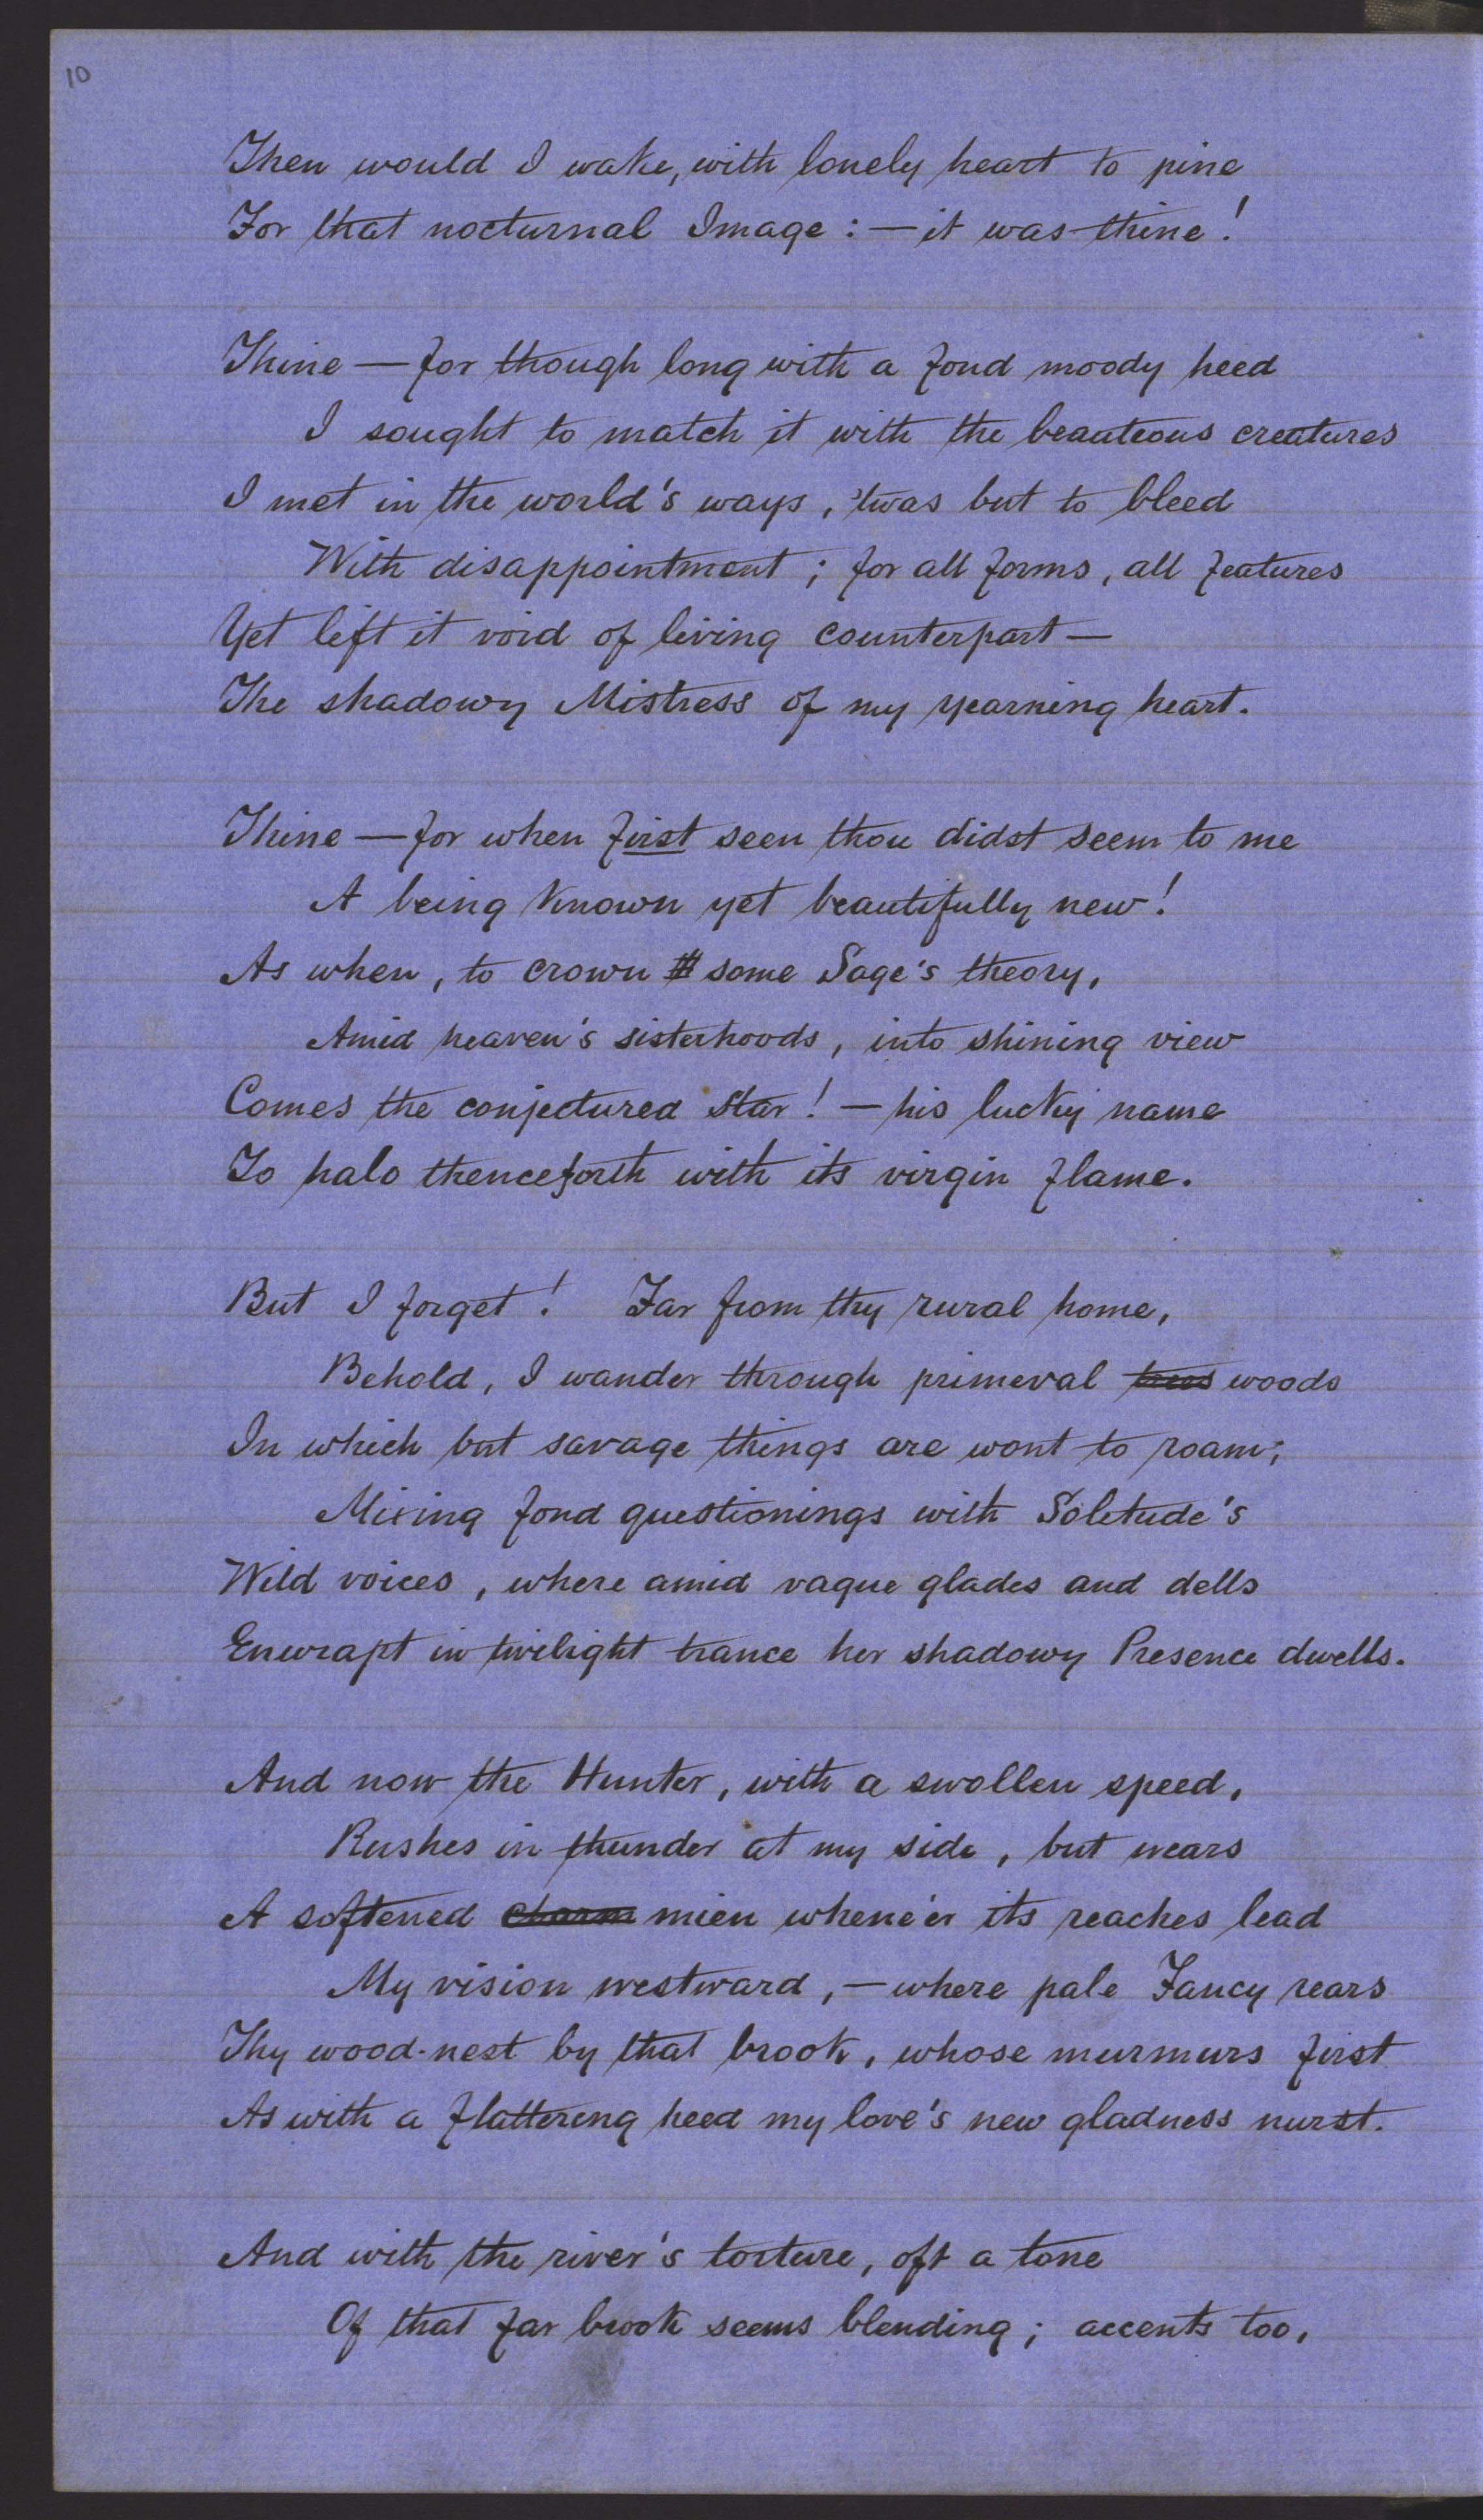 10
Then would I wake, with lonely heart to pine
For that nocturnal Image : — it was thine!
Thine — for though long with a fond moody heed
I sought to match it with the beauteous creatures
I met in the world's ways, 'twas but to bleed
With disappointment ; for all forms, all features
Yet left it void of living counterpart —
The shadowy Mistress of my yearning heart.
Thine — for when first seen thou didst seem to me
A being known yet beautifully new!
As when, to crown some Sage's theory,
Amid heaven's sisterhoods, into shining view
Comes the conjectured Star! — his lucky name
To halo thenceforth with its virgin flame.
But I forget! Far from thy rural home,
Behold, I wander through primeval trees woods
In which but savage things are wont to roam;
Mixing fond questionings with Solitude's
Wild voices, where amid vague glades and dells
Enwrapt in twilight trance her shadowy Presence dwells.
And now the Hunter, with a swollen speed,
Rushes in thunder at my side, but wears
A softened charm mien whene'er its reaches lead
My vision westward, — where pale Fancy rears
Thy wood-nest by that brook, whose murmurs first
As with a flattering heed my love's new gladness nurst.
And with the river's torture, oft a tone
Of that far brook seems blending ; accents too,